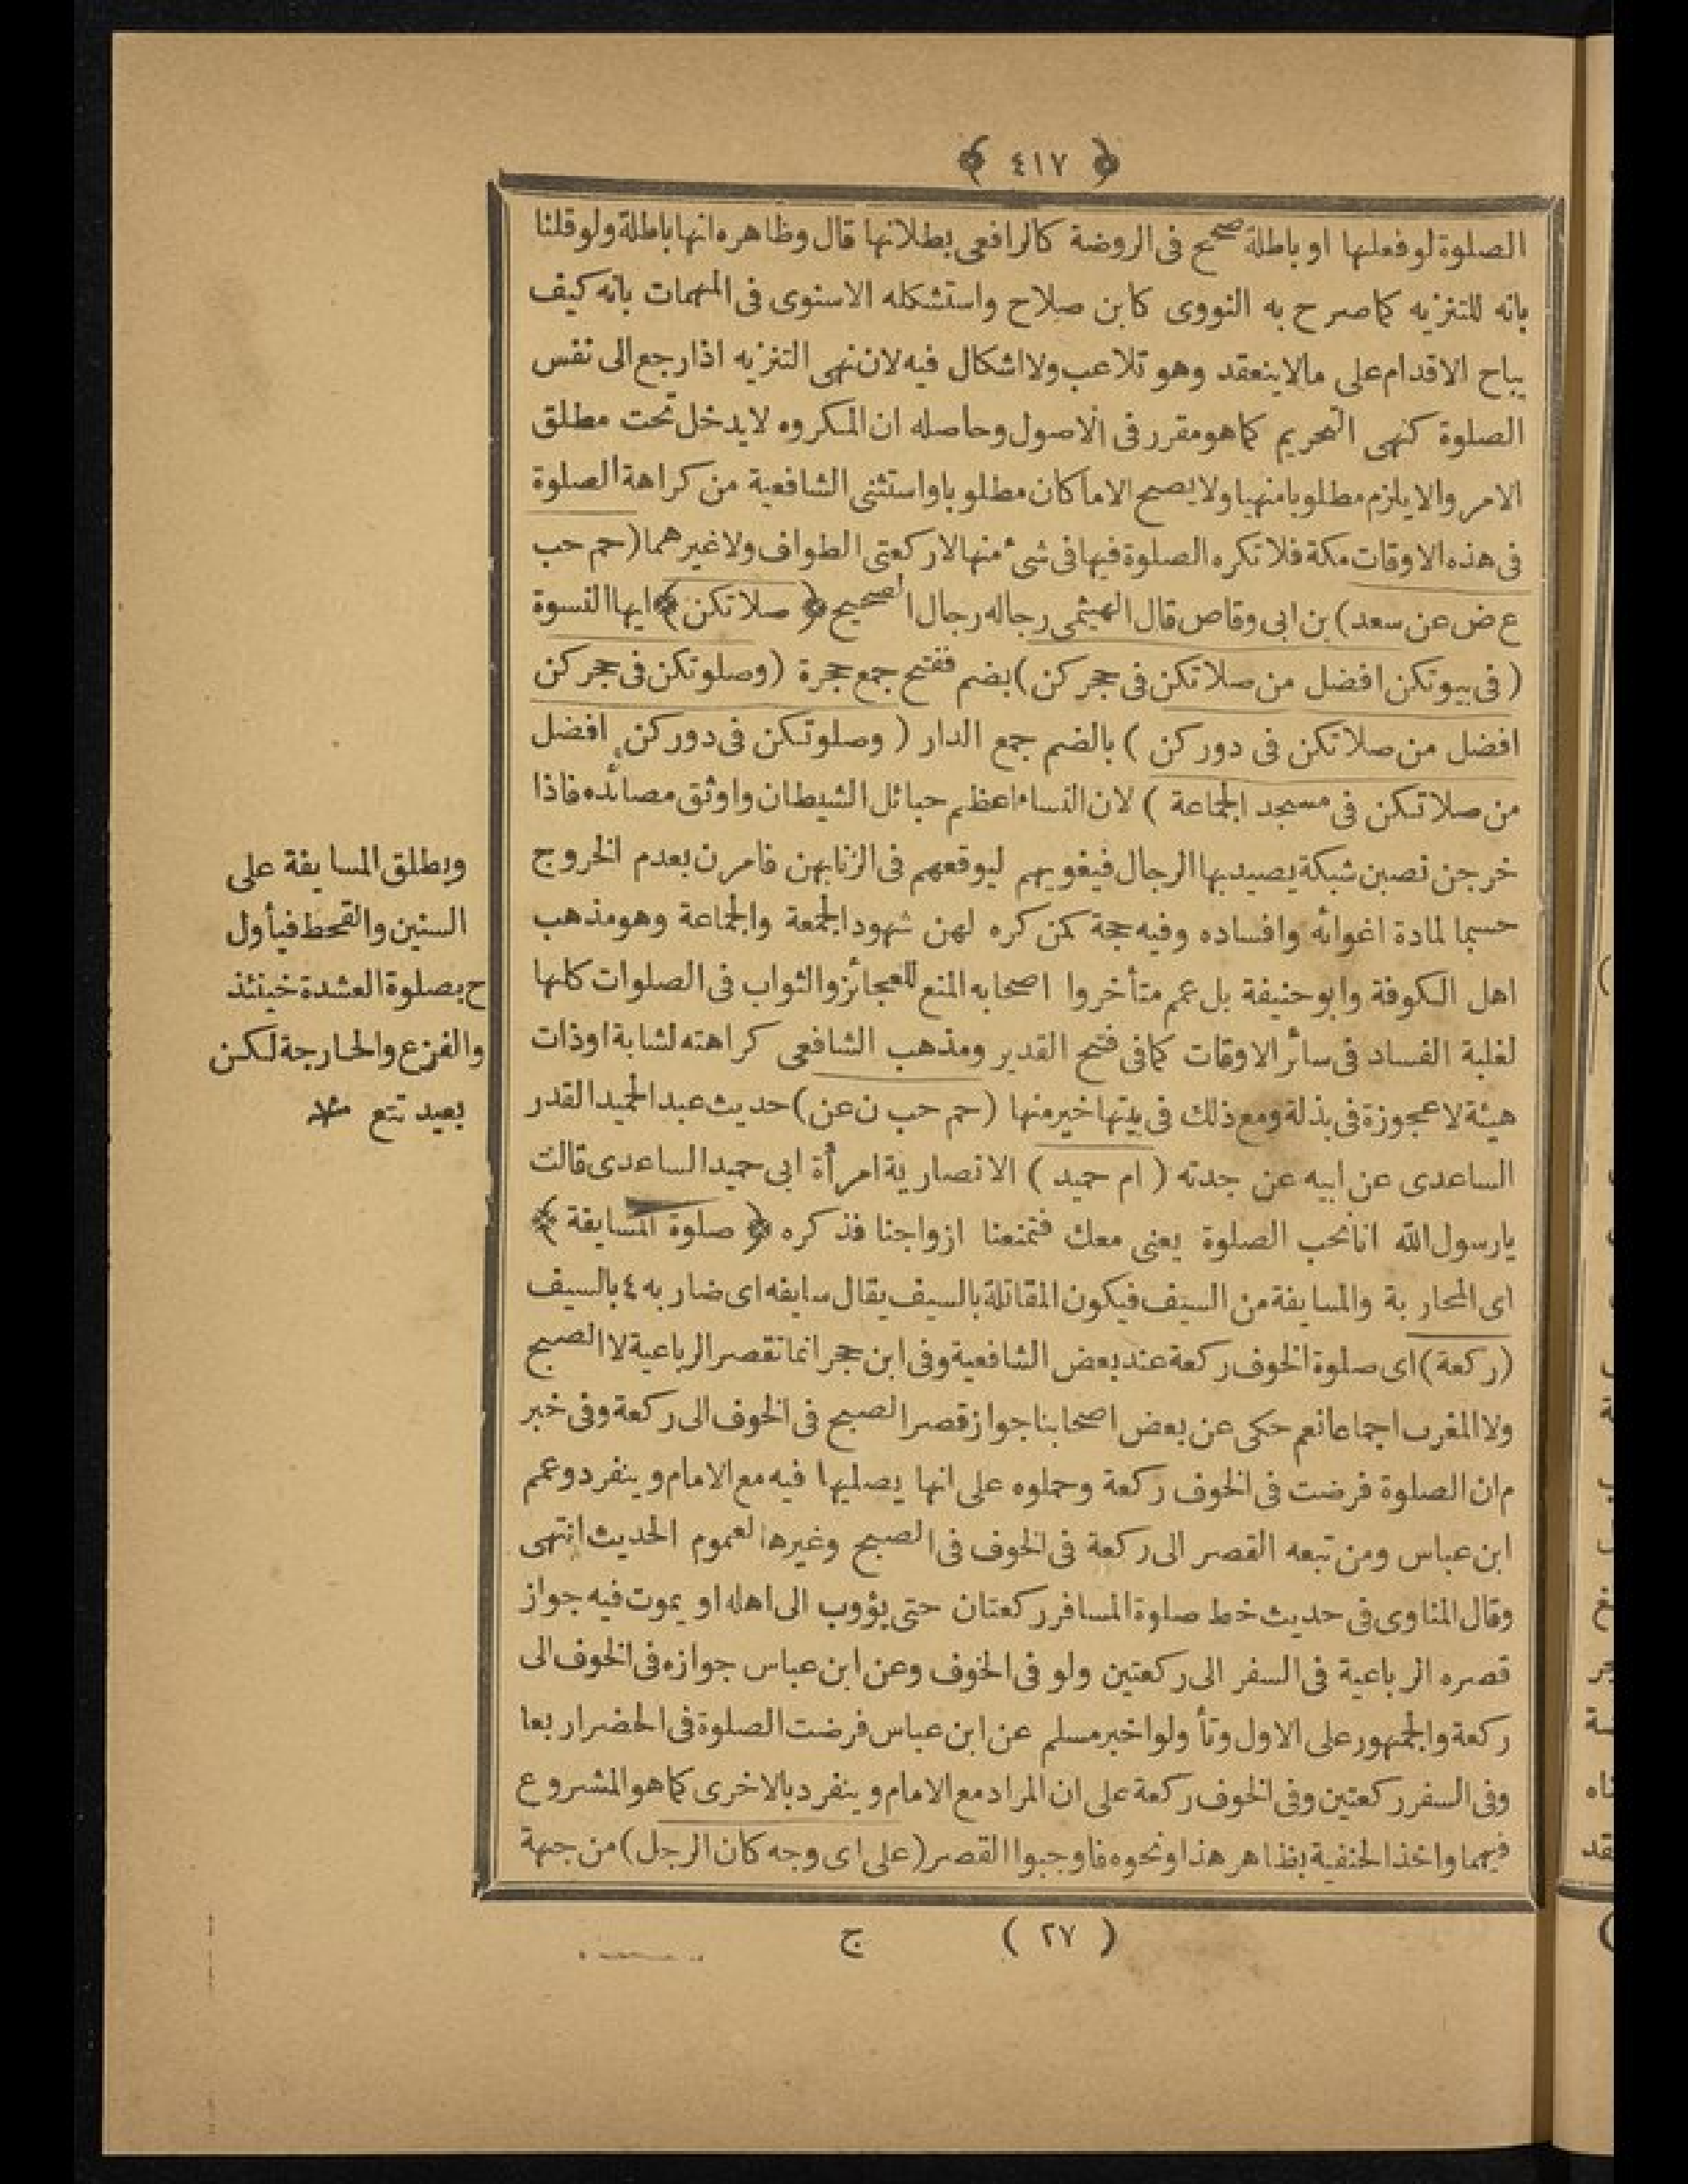 ﴿ ٤١٧ ﴾
الصلوة لو فعلها او باطلة صحح فى الروضة كالرافعى بطلانها قال وظاهره انها باطلة ولو قلنا
بانه للتنزيه كما صرح به النووى كابن صلاح واستشكله الاسنوى فى المهمات بانه كيف
يباح الاقدام على مالا ينعقد وهو تلاعب ولا اشكال فيه لان نهى التنزيه اذا رجع الى نفس
الصلوة كنهى التحريم كما هو مقرر فى الاصول وحاصله ان المكروه لا يدخل تحت مطلق
الامر والا يلزم مطلوبا منهيا ولا يصح الا ما كان مطلوبا واستثنى الشافعية من كراهة الصلوة
فى هذه الاوقات مكة فلا تكره الصلوة فيها فى شئ منها لا ركعتى الطواف ولا غيرهما (حم حب
ع ض عن سعد) بن ابى وقاص قال الهيثمى رجاله رجال الصحيح ﴿ صلاتكن ﴾ ايها النسوة
(فى بيوتكن افضل من صلاتكن فى حجركن) بضم ففتح جمع حجرة (وصلوتكن فى حجركن
افضل من صلاتكن فى دوركن ) بالضم جمع الدار ( وصلوتكن فى دوركن افضل
من صلاتكن فى مسجد الجماعة ) لان النساء اعظم حبائل الشيطان واوثق مصائده فاذا
خرجن نصبن شبكة يصيد بها الرجال فيغويهم ليوقعهم فى الزنا بهن فامرن بعدم الخروج
حسما لمادة اغوائه وافساده وفيه حجة لمن كره لهن شهود الجمعة والجماعة وهو مذهب
اهل الكوفة وابو حنيفة بل عمم متأخروا اصحابه المنع للعجائز والثواب فى الصلوات كلها
لغلبة الفساد فى سائر الاوقات كما فى فتح القدير ومذهب الشافعى كراهته لشابة او ذات
هيئة لا عجوزة فى بذلة ومع ذلك فى بيتها خير منها (حم حب ن عن) حديث عبد الحميد القدر
الساعدى عن ابيه عن جدته ( ام حميد ) الانصارية امرأة ابى حميد الساعدى قالت
يارسول الله انا نحب الصلوة يعنى معك فتمنعنا ازواجنا فذكره ﴿ صلوة المسايفة ﴾
اى المحاربة والمسايفة من السيف فيكون المقاتلة بالسيف يقال سايفه اى ضاربه ٤ بالسيف
(ركعة) اى صلوة الخوف ركعة عند بعض الشافعية وفى ابن حجر انما تقصر الرباعية لا الصبح
ولا المغرب اجماعا نعم حكى عن بعض اصحابنا جواز قصر الصبح فى الخوف الى ركعة وفى خبر
م ان الصلوة فرضت فى الخوف ركعة وحملوه على انها يصليها فيه مع الامام وينفرد وعمم
ابن عباس ومن تبعه القصر الى ركعة فى الخوف فى الصبح وغيرها لعموم الحديث انتهى
وقال المناوى فى حديث خط صلوة المسافر ركعتان حتى يؤوب الى اهله او يموت فيه جواز
قصره الرباعية فى السفر الى ركعتين ولو فى الخوف وعن ابن عباس جوازه فى الخوف الى
ركعة والجمهور على الاول وتأولوا خبر مسلم عن ابن عباس فرضت الصلوة فى الحضر اربعا
وفى السفر ركعتين وفى الخوف ركعة على ان المراد مع الامام وينفرد بالاخرى كما هو المشروع
فيهما واخذ الحنفية بظاهر هذا ونحوه فاوجبوا القصر (على اى وجه كان الرجل) من جهة
ويطلق المسايفة على
السنين والقحط فيأول
ح بصلوة العشدة خينئذ
والفزع والخارجة لكن
بعيد تتع منه
( ٢٧ ) ج